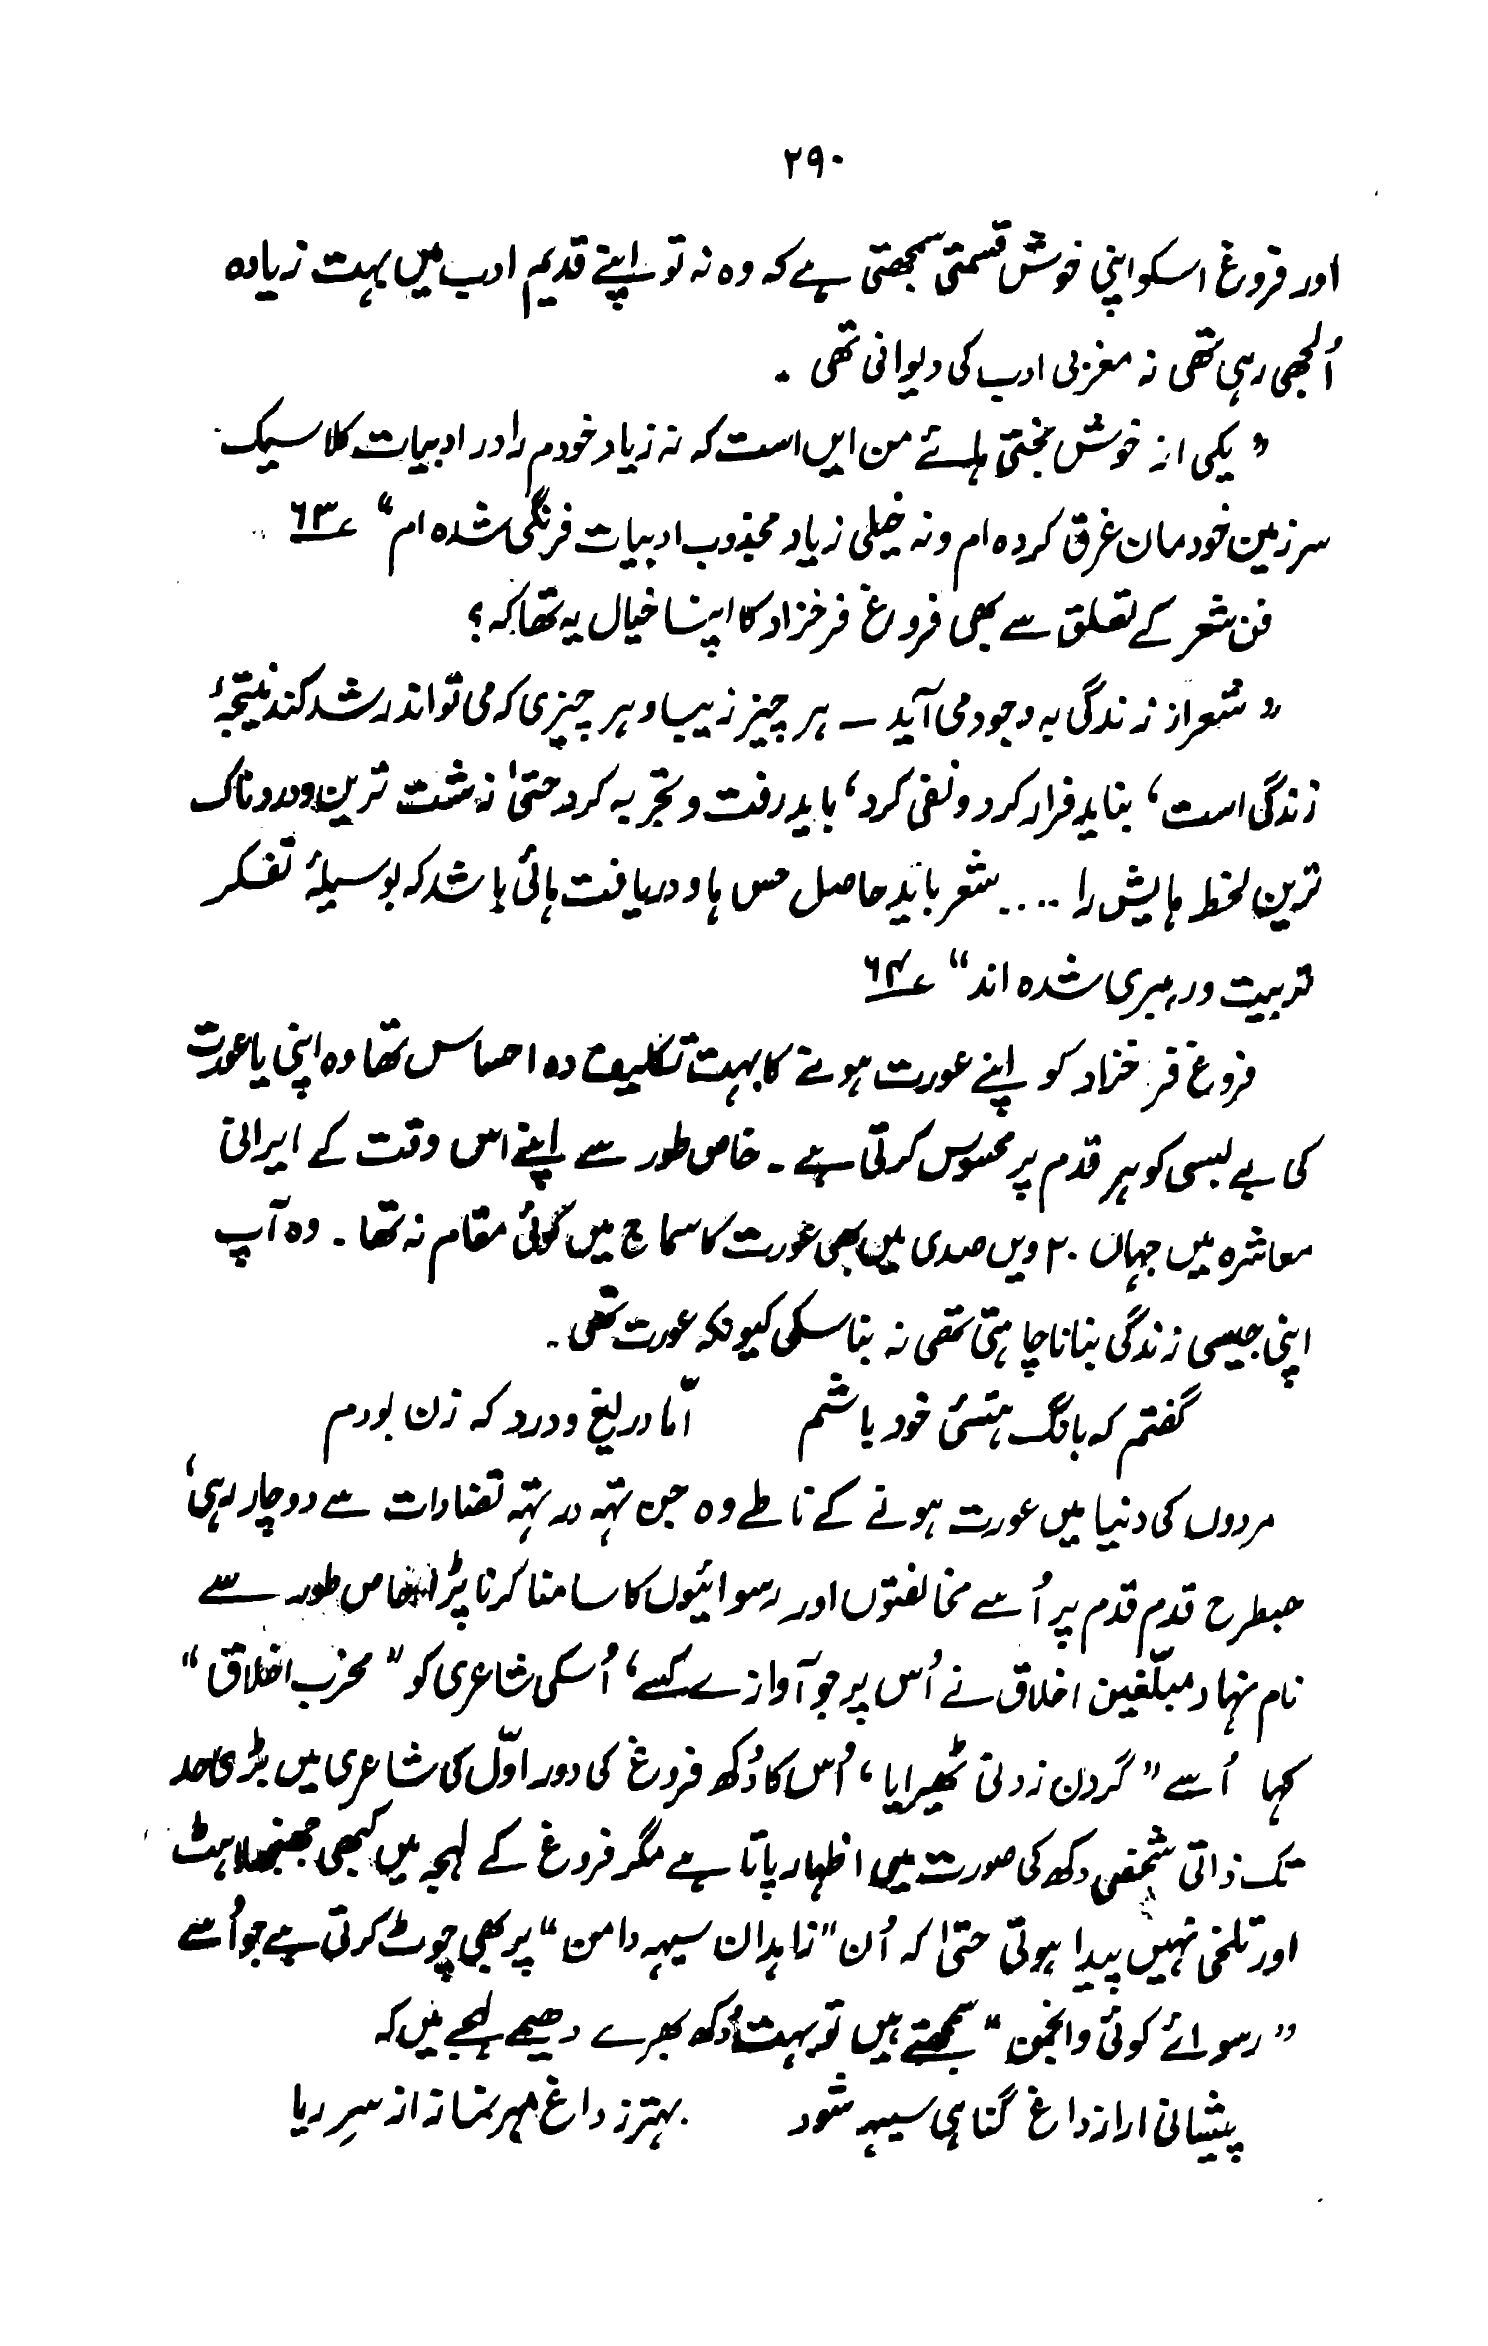 ۲۹۰
اور فروغ اسکو اپنی خوش قسمتی سمجھتی ہے کہ وہ نہ تو اپنے قدیم ادب میں بہت زیادہ
اُلجھی رہی تھی نہ مغربی ادب کی دیوانی تھی ۔
” یکی از خوش بختی ہائے من ایں است کہ نہ زیاد خودم را در ادبیات کلاسیک
سرزمین خودمان غرق کردہ ام و نہ خیلی زیاد مجذوب ادبیات فرنگی شدہ ام “ ؏۶۳
فن شعر کے تعلق سے بھی فروغ فرخزاد کا اپنا خیال یہ تھا کہ ؟
” شعر از زندگی بہ وجود می آید ــ ہر چیز زیبا و ہر چیزی کہ می تواند رشد کند نتیجۂ
زندگی است ، بناید فرار کرد و نفی کرد ، باید رفت و تجربہ کرد حتیٰ زشت ترین و دردناک
ترین لحظ ہایش را ..... شعر باید حاصل حس ہا و دریافت ہائی باشد کہ بوسیلۂ تفکر
تربیت و رہبری شدہ اند “ ؏۶۴
فروغ فرخزاد کو اپنے عورت ہونے کا بہت تکلیف دہ احساس تھا وہ اپنی یا عورت
کی بے بسی کو ہر قدم پر محسوس کرتی ہے ۔ خاص طور سے اپنے اس وقت کے ایرانی
معاشرہ میں جہاں ۲۰ ویں صدی میں بھی عورت کا سماج میں کوئی مقام نہ تھا ۔ وہ آپ
اپنی جیسی زندگی بنانا چاہتی تھی نہ بنا سکی کیونکہ عورت تھی ۔
گفتم کہ بانگ ہستئی خود باشم امّا دریغ و درد کہ زن بودم
مردوں کی دنیا میں عورت ہونے کے ناطے وہ جن تہہ در تہہ تضادات سے دوچار رہی ،
جسطرح قدم قدم پر اُسے مخالفتوں اور رسوائیوں کا سامنا کرنا پڑا خاص طور سے
نام نہاد مبلّغین اخلاق نے اُس پر جو آوازے کسے ، اُسکی شاعری کو ” مخرب اخلاق “
کہا اُسے ” گردن زدنی ٹھیرایا ، اُس کا دُکھ فروغ کی دور اوّل کی شاعری میں بڑی حد
تک ذاتی شخصی دکھ کی صورت میں اظہار پاتا ہے مگر فروغ کے لہجہ میں کبھی جھنجھلاہٹ
اور تلخی نہیں پیدا ہوتی حتیٰ کہ اُن ” زاہدان سیہہ دامن “ پر بھی چوٹ کرتی ہے جو اُسے
” رسوائے کوئی و انجمن “ سمجھتے ہیں تو بہت دُکھ بھرے دھیمے لہجے میں کہ
پیشانی ار از داغ گناہی سیہہ شود بہتر ز داغ مہر نماز از سرِ ریا